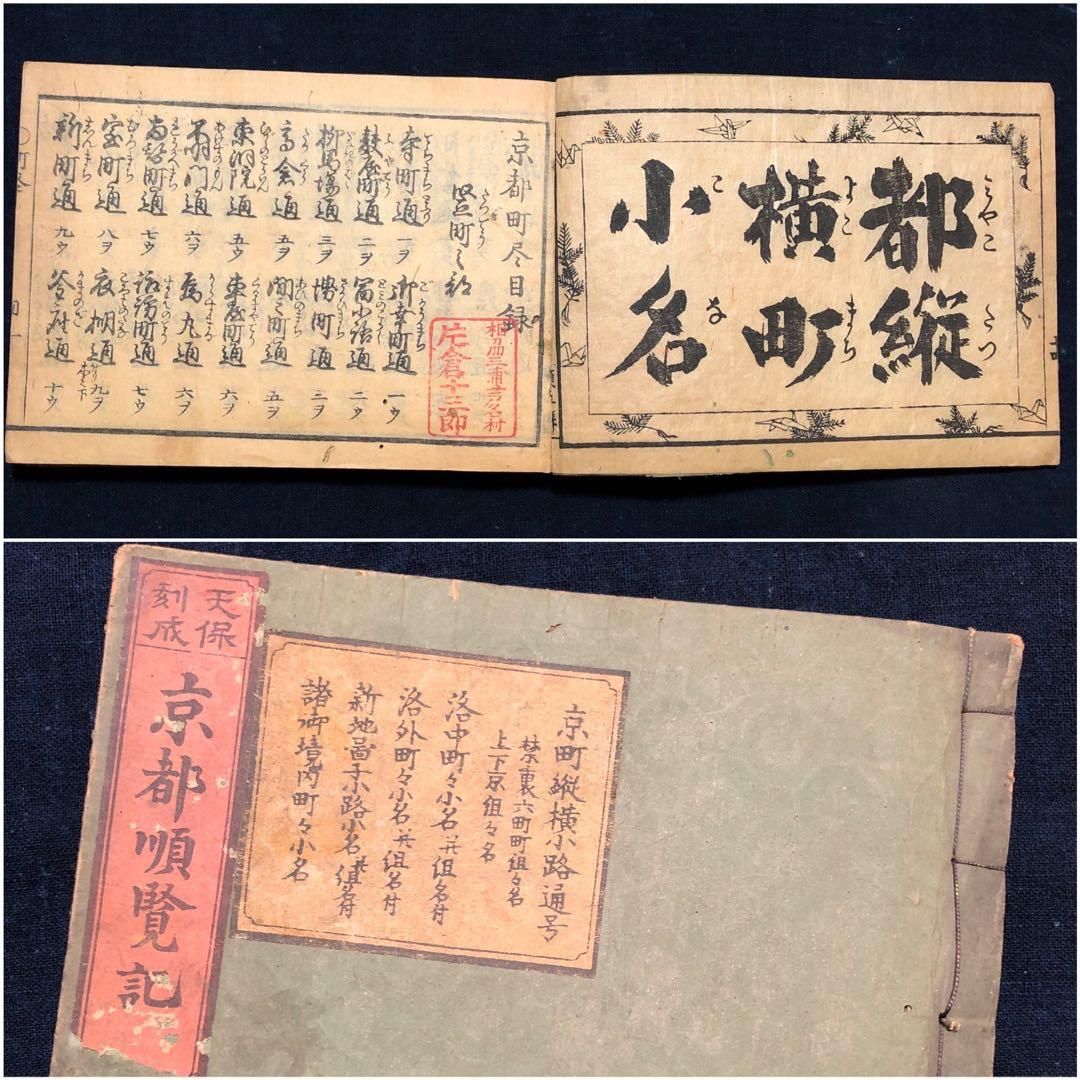 都縦
みやこ たつ
横町
よこ まち
小名
こ な
京都町尽目録
竪町之部
寺町通 一ヲ 御幸町通 一ウ
麩屋町通 二ヲ 冨小路通 二ウ
柳馬場通 三ヲ 堺町通 三ヲ
高倉通 五ヲ 間之町通 五ヲ
東洞院通 五ウ 車屋町通 六ヲ
不明門通 六ヲ 烏丸通 六ヲ
両替町通 七ウ 諏訪町通 七ウ
室町通 八ヲ 衣棚通 九ヲ
新町通 九ウ 釜座通 十ウ
相州三浦
片倉十三郎
天保
刻成
京都順覧記
京町縦横小路通号
禁裏六町町組々名
上下京組々名
洛中町々小名并組名付
洛外町々小名并組名付
新地図子小路小名并組名付
諸御境内町々小名